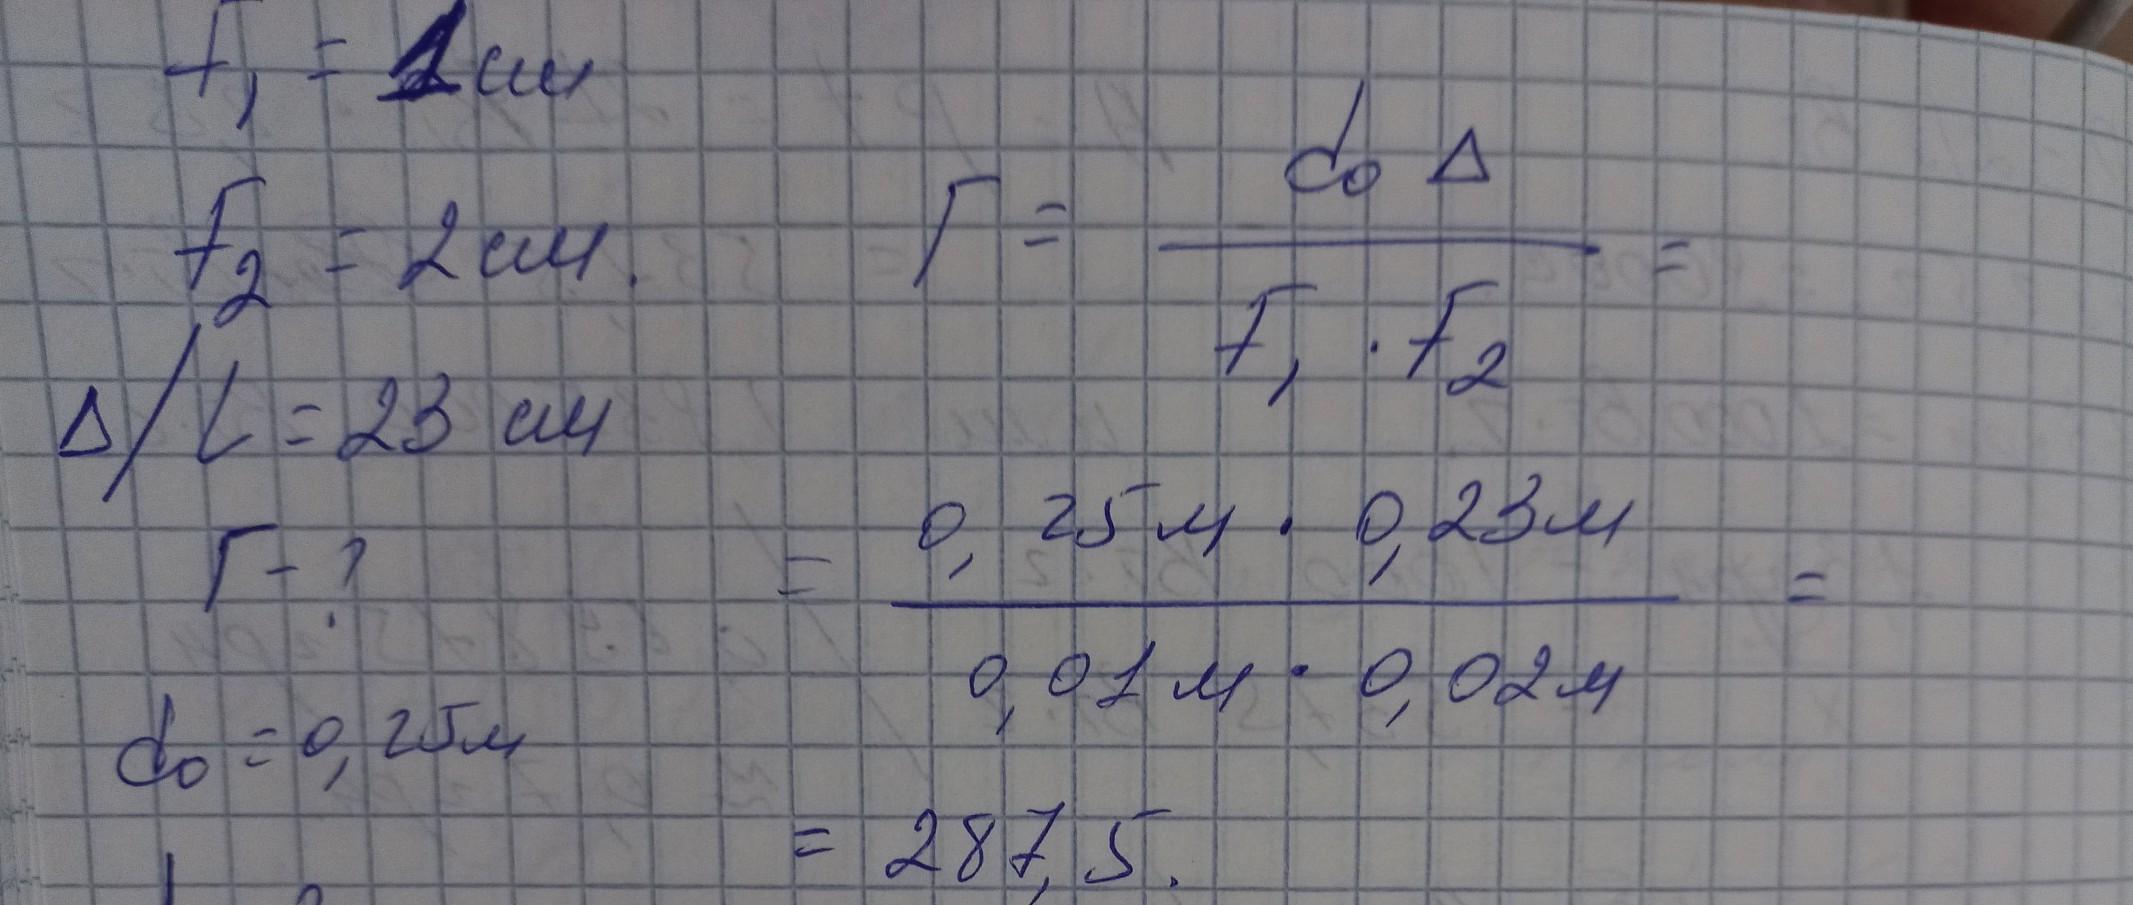 F₁ = 1 см
F₂ = 2 см.
Δ/L = 23 см
Г - ?
d₀ = 0,25м
Г = d₀ Δ / F₁ · F₂ =
= 0,25м · 0,23м / 0,01м · 0,02м =
= 287,5.